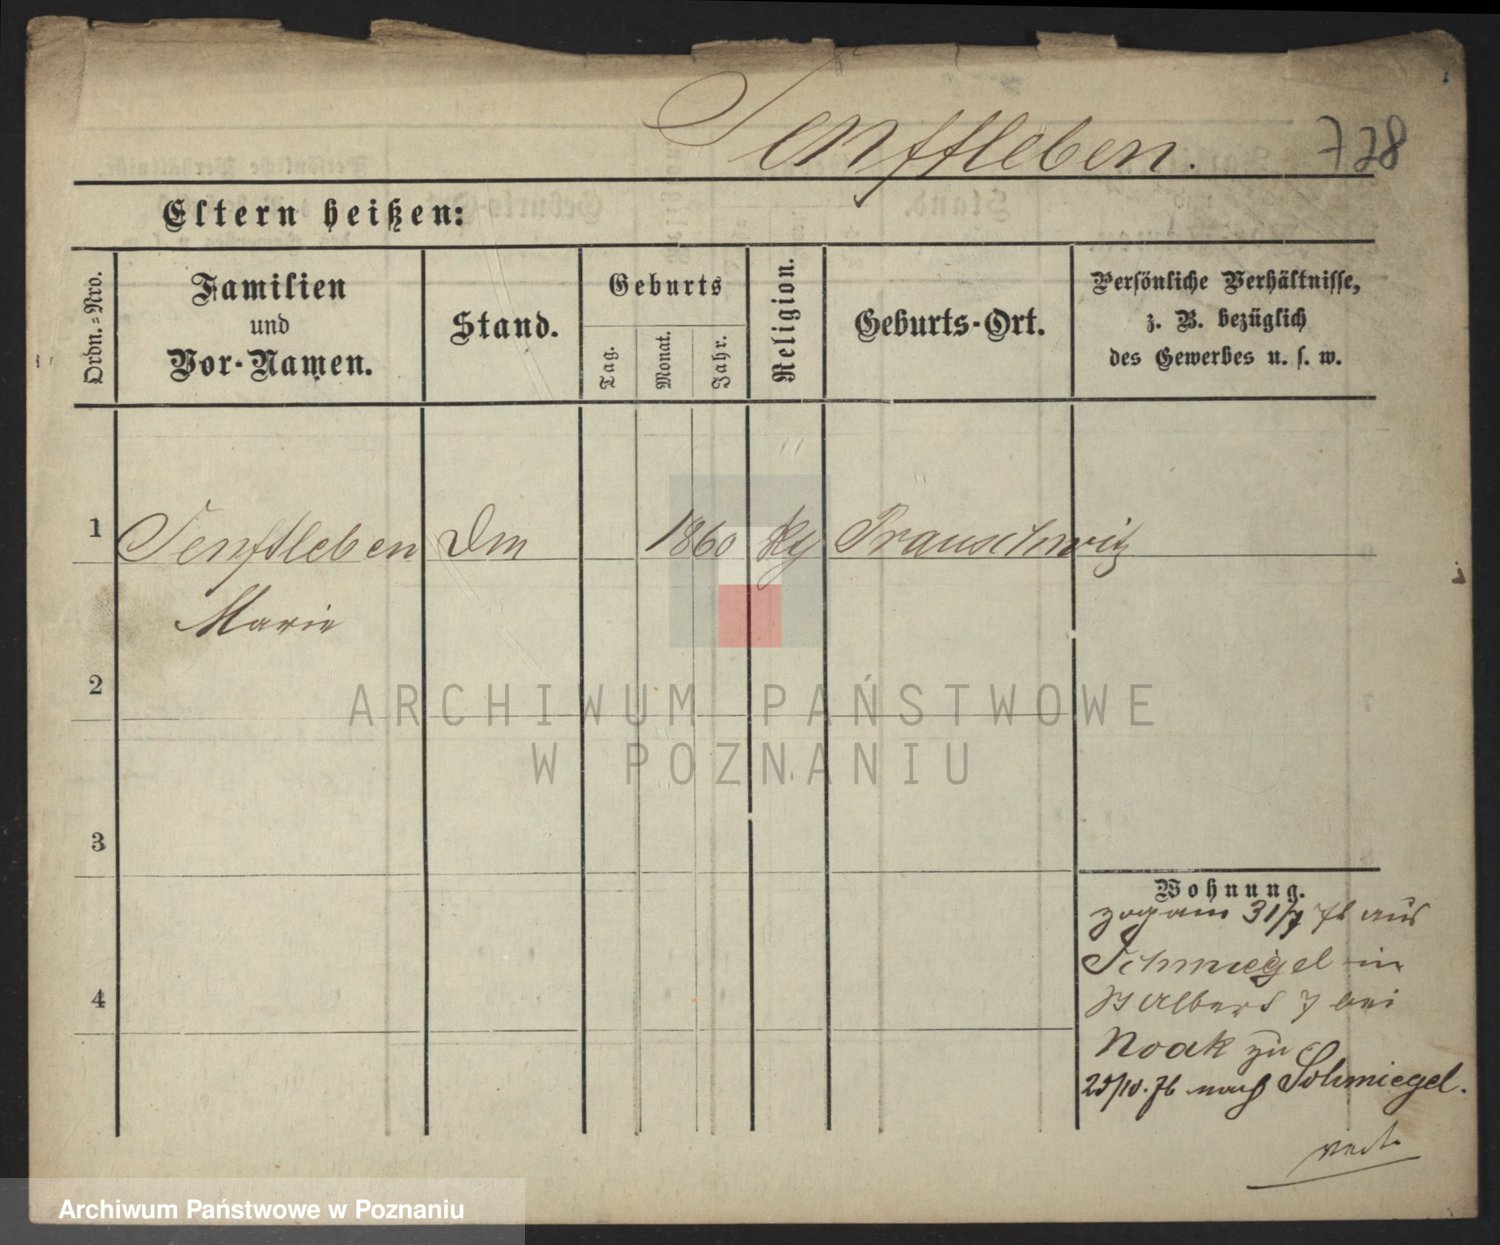 Senftleben.
728
Eltern heißen:
Ordn.-Nro.
Familien
und
Vor-Namen.
Stand.
Geburts
Tag.
Monat.
Jahr.
Religion.
Geburts-Ort.
Persönliche Verhältnisse,
z. B. bezüglich
des Gewerbes u. s. w.
1 Senftleben Dm 1860 Prauschwitz
Marie
2
ARCHIWUM PAŃSTWOWE
W POZNANIU
3
4
Wohnung.
zog am 31/7 76 aus
Schmiegel in
St Albert 7 bei
Noak zu
25/10.76 nach Schmiegel.
Archiwum Państwowe w Poznaniu